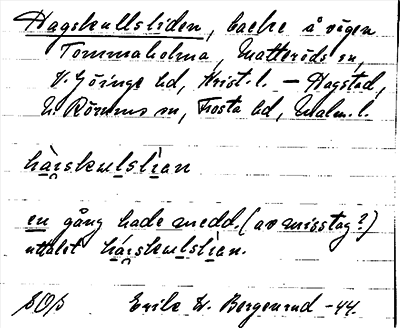 Hagskullsliden, backe å vägen
Tommaholma, Matteröds sn,
V. Göinge hd, Krist. l. — Hagstad,
N. Rörums sn, Frosta hd, Malm. l.
hàiskulslian
en gång hade medd. (av misstag?)
uttalet háiskulslian.
SOß Erik W. Bergerud -44.